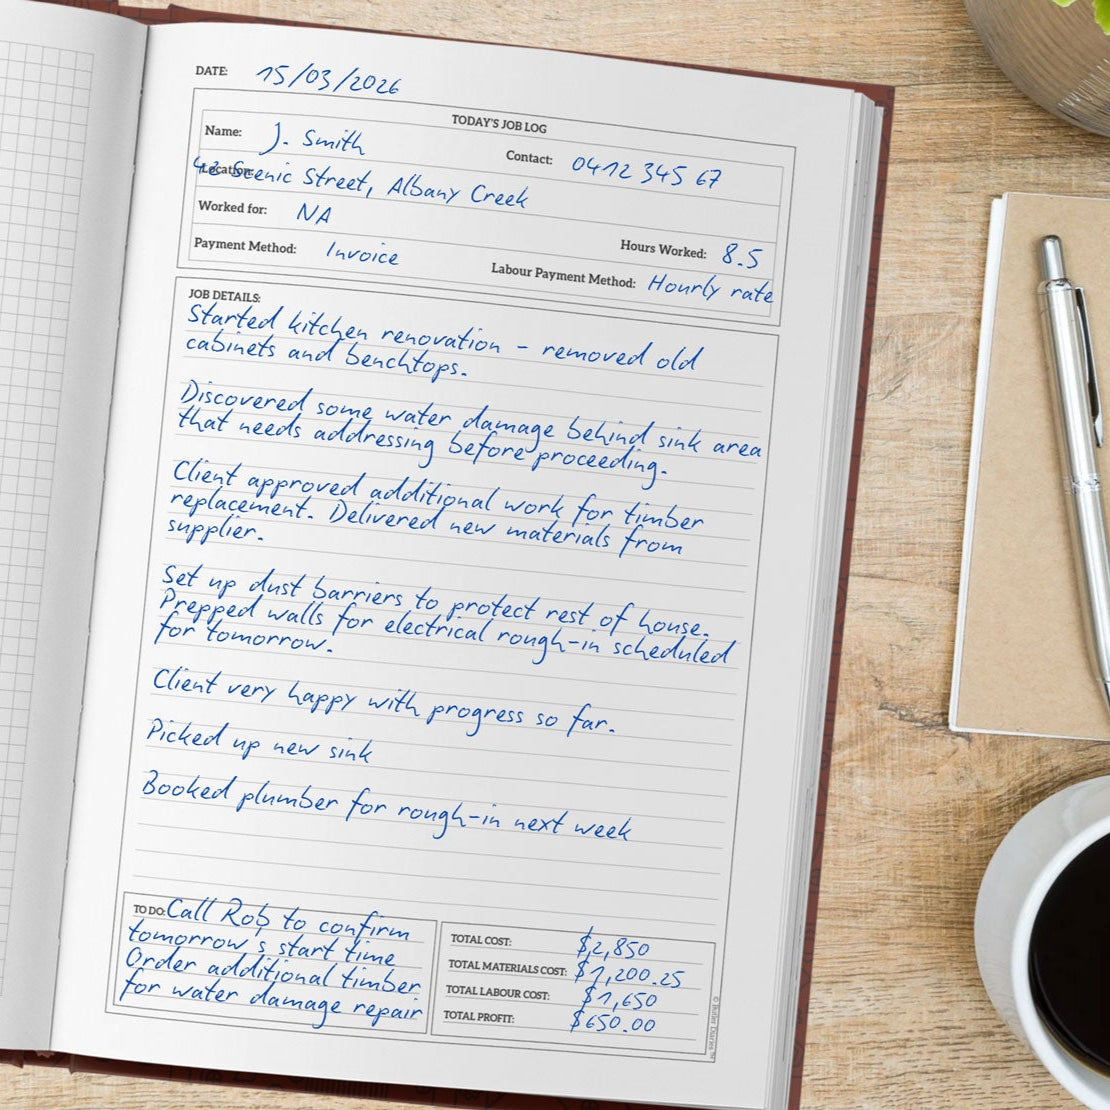 DATE: 15/03/2026
TODAY'S JOB LOG
Name: J. Smith Contact: 0412 345 67
Location: 42 Scenic Street, Albany Creek
Worked for: NA Hours Worked: 8.5
Payment Method: Invoice Labour Payment Method: Hourly rate
JOB DETAILS:
Started kitchen renovation - removed old
cabinets and benchtops.
Discovered some water damage behind sink area
that needs addressing before proceeding.
Client approved additional work for timber
replacement. Delivered new materials from
supplier.
Set up dust barriers to protect rest of house.
Prepped walls for electrical rough-in scheduled
for tomorrow.
Client very happy with progress so far.
Picked up new sink
Booked plumber for rough-in next week
TO DO: Call Rob to confirm
tomorrow s start time
Order additional timber
for water damage repair
TOTAL COST: $2,850
TOTAL MATERIALS COST: $1,200.25
TOTAL LABOUR COST: $1,650
TOTAL PROFIT: $650.00
© Builder Diaries ™